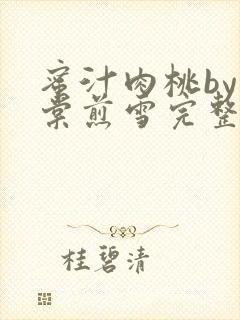 蜜汁肉桃by
棠煎雪完整
桂碧清